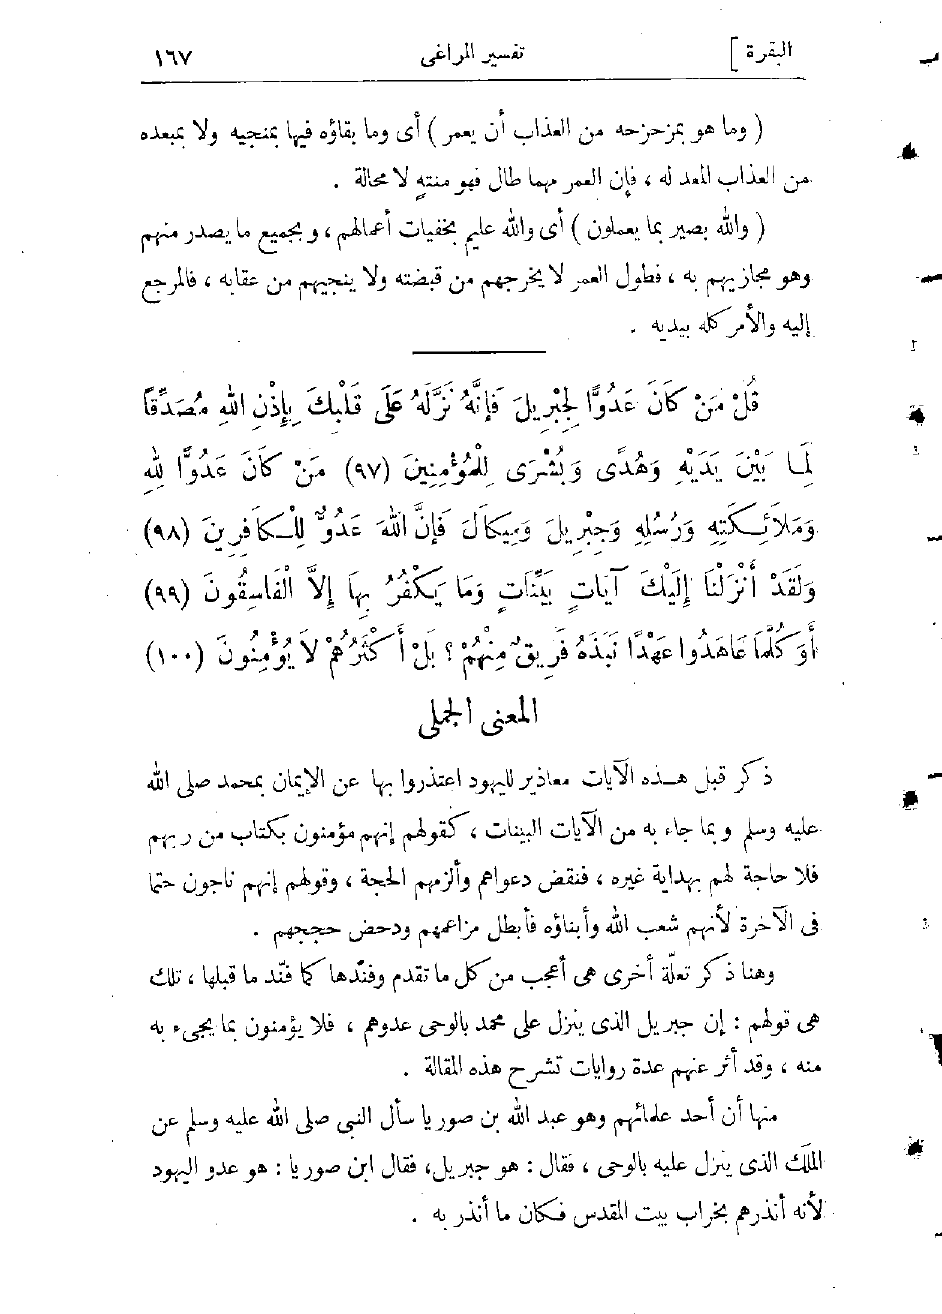 البقرة ] تفسير المراغى ١٦٧
( وما هو بمزحزحه من العذاب أن يعمر ) أى وما بقاؤه فيها بمنجيه ولا بمبعده
من العذاب المعد له ، فإن العمر مهما طال فهو منتهٍ لا محالة .
( والله بصير بما يعملون ) أى والله عليم بخفيات أعمالهم ، وبجميع ما يصدر منهم
وهو مجازيهم به ، فطول العمر لا يخرجهم من قبضته ولا ينجيهم من عقابه ، فالمرجع
إليه والأمر كله بيديه .
قُلْ مَنْ كَانَ عَدُوًّا لِجِبْرِيلَ فَإِنَّهُ نَزَّلَهُ عَلَى قَلْبِكَ بِإِذْنِ اللهِ مُصَدِّقًا
لِمَا بَيْنَ يَدَيْهِ وَهُدًى وَبُشْرَى لِلْمُؤْمِنِينَ (٩٧) مَنْ كَانَ عَدُوًّا لِلهِ
وَمَلاَئِكَتِهِ وَرُسُلِهِ وَجِبْرِيلَ وَمِيكَالَ فَإِنَّ اللهَ عَدُوٌّ لِلْكَافِرِينَ (٩٨)
وَلَقَدْ أَنْزَلْنَا إِلَيْكَ آيَاتٍ بَيِّنَاتٍ وَمَا يَكْفُرُ بِهَا إِلاَّ الْفَاسِقُونَ (٩٩)
أَوَ كُلَّمَا عَاهَدُوا عَهْدًا نَبَذَهُ فَرِيقٌ مِنْهُمْ ؟ بَلْ أَكْثَرُهُمْ لاَ يُؤْمِنُونَ (١٠٠)
المعنى الجملى
ذكر قبل هذه الآيات معاذير لليهود اعتذروا بها عن الإيمان بمحمد صلى الله
عليه وسلم وبما جاء به من الآيات البينات ، كقولهم إنهم مؤمنون بكتاب من ربهم
فلا حاجة لهم بهداية غيره ، فنقض دعواهم وألزمهم الحجة ، وقولهم إنهم ناجون حتما
فى الآخرة لأنهم شعب الله وأبناؤه فأبطل مزاعمهم ودحض حججهم .
وهنا ذكر تعلّة أخرى هى أعجب من كل ما تقدم وفنّدها كما فنّد ما قبلها ، تلك
هى قولهم : إن جبريل الذى ينزل على محمد بالوحى عدوهم ، فلا يؤمنون بما يجىء به
منه ، وقد أثر عنهم عدة روايات تشرح هذه المقالة .
منها أن أحد علمائهم وهو عبد الله بن صوريا سأل النبى صلى الله عليه وسلم عن
الملَك الذى ينزل عليه بالوحى ، فقال : هو جبريل، فقال ابن صوريا : هو عدو اليهود
لأنه أنذرهم بخراب بيت المقدس فكان ما أنذر به .